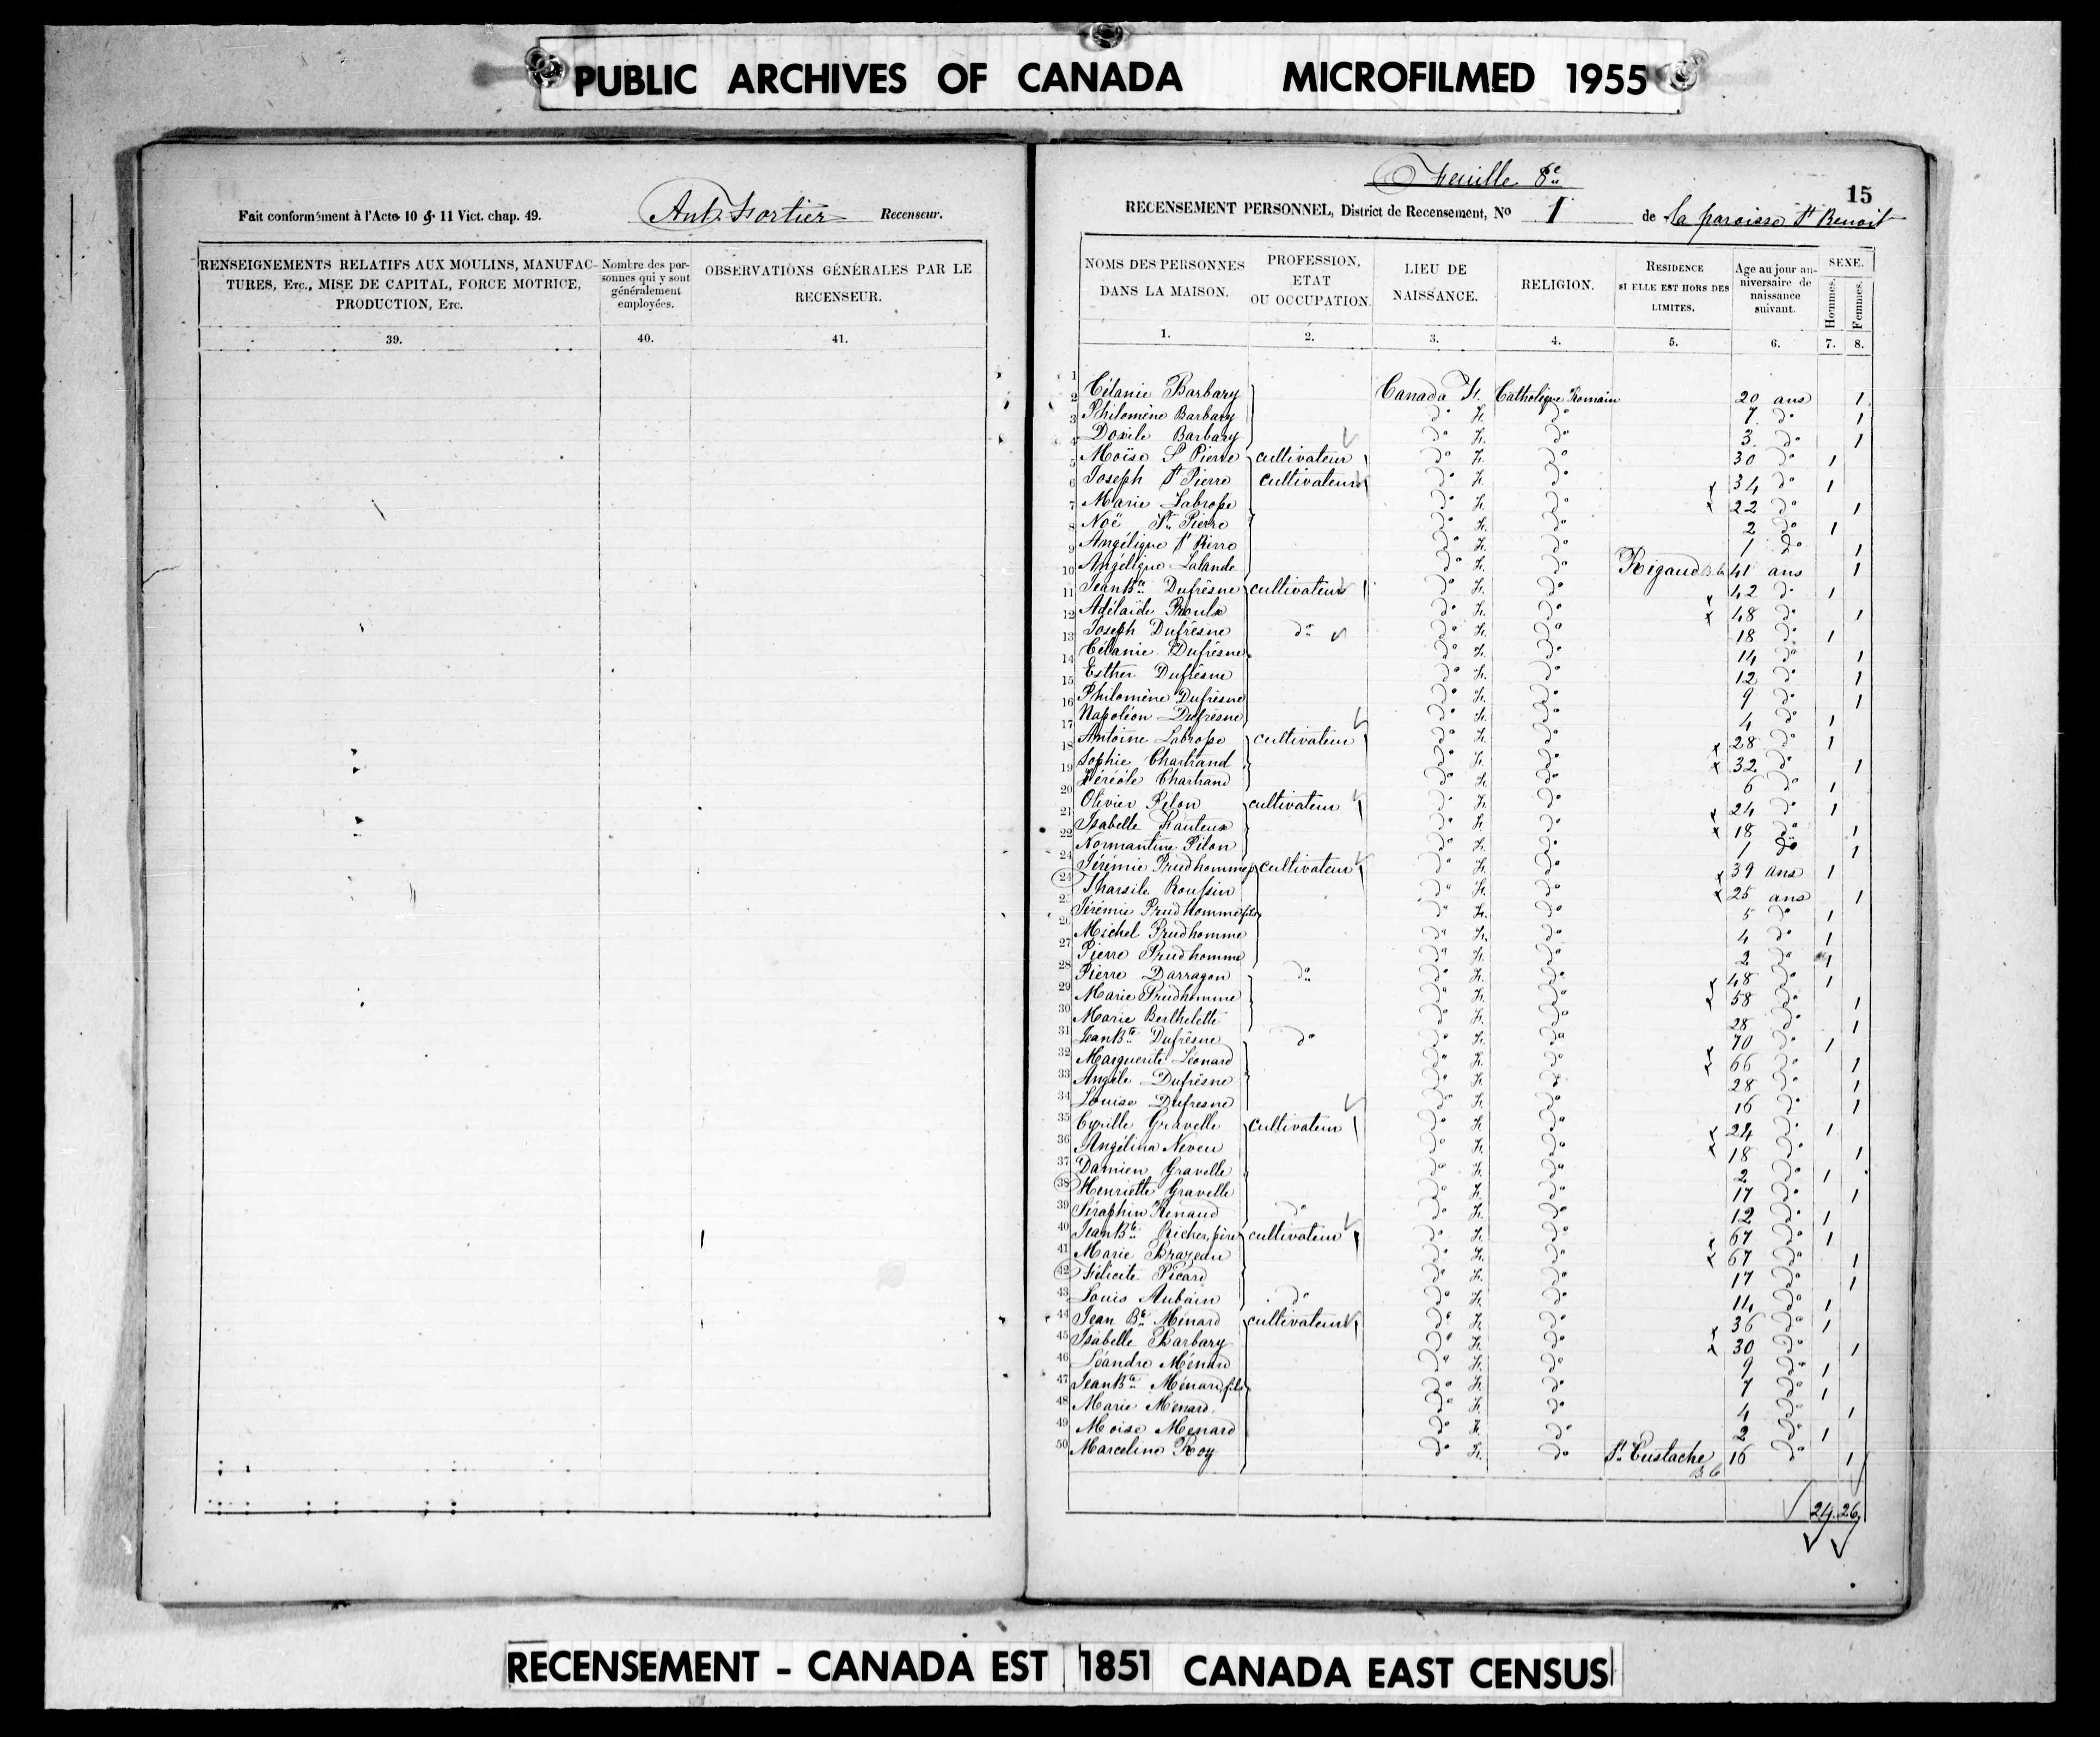 PUBLIC ARCHIVES OF CANADA MICROFILMED 1955
Fait conformément à l'Acte 10 & 11 Vict. chap. 49. Ant. Fortier Recenseur.
RENSEIGNEMENTS RELATIFS AUX MOULINS, MANUFAC-
TURES, Etc., MISE DE CAPITAL, FORCE MOTRICE,
PRODUCTION, Etc.
Nombre des per-
sonnes qui y sont
généralement
employées.
OBSERVATIONS GÉNÉRALES PAR LE
RECENSEUR.
39. 40. 41.
Feuille 8e
15
RECENSEMENT PERSONNEL, District de Recensement, No 1 de la paroisse St Benoit
NOMS DES PERSONNES
DANS LA MAISON.
PROFESSION,
ETAT
OU OCCUPATION.
LIEU DE
NAISSANCE.
RELIGION.
RESIDENCE
SI ELLE EST HORS DES
LIMITES.
Age au jour an-
niversaire de
naissance
suivant.
SEXE.
Hommes.
Femmes.
1. 2. 3. 4. 5. 6. 7. 8.
1 Célanie Barbary Canada Fr. Catholique Romain 20 ans 1
2 Philomène Barbary do Fr. do 7 do 1
3 Doxile Barbary do Fr. do 3 do 1
4 Moïse St Pierre cultivateur do Fr. do 30 do 1
5 Joseph St Pierre cultivateur do Fr. do x 34 do 1
6 Marie Labrosse do Fr. do x 22 do 1
7 Noë St Pierre do Fr. do 2 do 1
8 Angélique St Pierre do Fr. do 1 do 1
9 Angélique Lalande do Fr. do Rigaud B.C. 41 ans 1
10 Jean Bte Dufrêsne cultivateur do Fr. do x 42 do 1
11 Adélaïde Proulx do Fr. do x 48 do 1
12 Joseph Dufrêsne do do Fr. do 18 do 1
13 Célanie Dufrêsne do Fr. do 14 do 1
14 Esther Dufrêsne do Fr. do 12 do 1
15 Philomène Dufrêsne do Fr. do 9 do 1
16 Napoléon Dufrêsne do Fr. do 4 do 1
17 Antoine Labrosse cultivateur do Fr. do x 28 do 1
18 Sophie Chartrand do Fr. do x 32 do 1
19 Chartrand do Fr. do 6 do 1
20 Olivier Pilon cultivateur do Fr. do x 24 do 1
21 Isabelle Fauteux do Fr. do x 18 do 1
22 Normantine Pilon do Fr. do 1 do 1
24 Jérémie Prudhomme p cultivateur do Fr. do x 39 ans 1
24 Tharsile Roussin do Fr. do x 25 ans 1
25 Jérémie Prudhomme fils do Fr. do 5 do 1
26 Michel Prudhomme do Fr. do 4 do 1
27 Pierre Prudhomme do Fr. do 2 do 1
28 Pierre Darragon do do Fr. do x 48 do 1
29 Marie Prudhomme do Fr. do x 58 do 1
30 Marie Berthelette do Fr. do 28 do 1
31 Jean Bte Dufrêsne do do Fr. do x 70 do 1
32 Marguerite Léonard do Fr. do x 66 do 1
33 Angèle Dufrêsne do Fr. do 28 do 1
34 Louise Dufresne do Fr. do 16 do 1
35 Cyrille Gravelle cultivateur do Fr. do x 24 do 1
36 Angélina Neveu do Fr. do x 18 do 1
37 Damien Gravelle do Fr. do 2 do 1
38 Henriette Gravelle do Fr. do 17 do 1
39 Séraphin Renaud do do Fr. do 12 do 1
40 Jean Bte Richer, père cultivateur do Fr. do x 67 do 1
41 Marie Brazeau do Fr. do x 67 do 1
42 Félicité Picard do Fr. do 17 do 1
43 Louis Aubain do do Fr. do 14 do 1
44 Jean Bte Ménard cultivateur do Fr. do x 36 do 1
45 Isabelle Barbary do Fr. do x 30 do 1
46 Léandre Ménard do Fr. do 9 do 1
47 Jean Bte Ménard, fils do Fr. do 7 do 1
48 Marie Ménard do Fr. do 4 do 1
49 Moise Menard do Fr. do 2 do 1
50 Marceline Roy do Fr. do St Eustache B C 16 do 1
24. 26
RECENSEMENT - CANADA EST 1851 CANADA EAST CENSUS